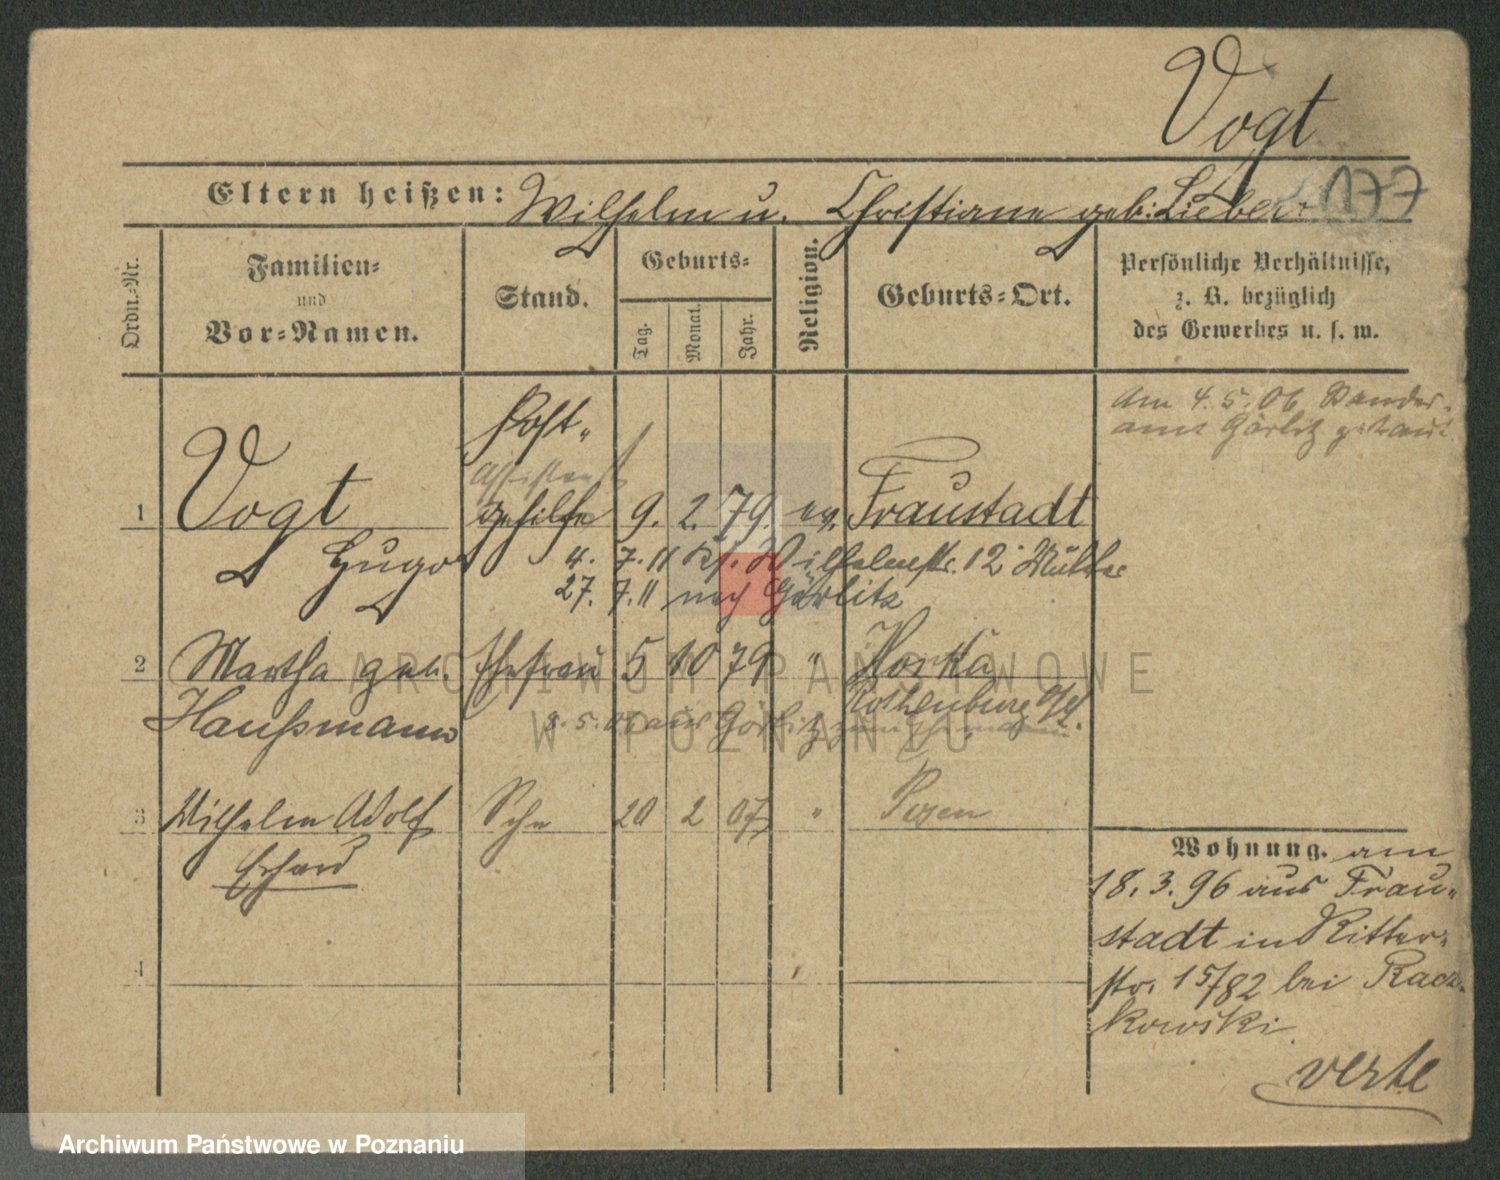 Vogt
177
Eltern heißen: Wilhelm u. Christiane geb. Lieber
Ordn.-Nr.
Familien-
und
Vor-Namen.
Stand.
Geburts-
Tag.
Monat.
Jahr.
Religion.
Geburts-Ort.
Persönliche Verhältnisse,
z. B. bezüglich
des Gewerbes u. s. w.
Am 4.5.06 Standes-
amt Görlitz getraut
Post-
Assistent
1 Vogt gehilfe 9. 2. 79. ev. Fraustadt
Hugo 4. 7. 11 Wilhelmstr. 12
27. 7. 11 nach Görlitz
2 Martha geb. Ehefrau 5 10 79 " Horka
Haußmann Rothenburg O/L.
8. 5. 06 aus Görlitz zum Ehemann.
3 Wilhelm Adolf Sohn 20 2 07 " Posen
Erhard
4
Wohnung. am
18. 3. 96 aus Frau-
stadt in Ritter-
str. 15/82 bei Racz-
kowski.
verte
ARCHIWUM PAŃSTWOWE
W POZNANIU
Archiwum Państwowe w Poznaniu